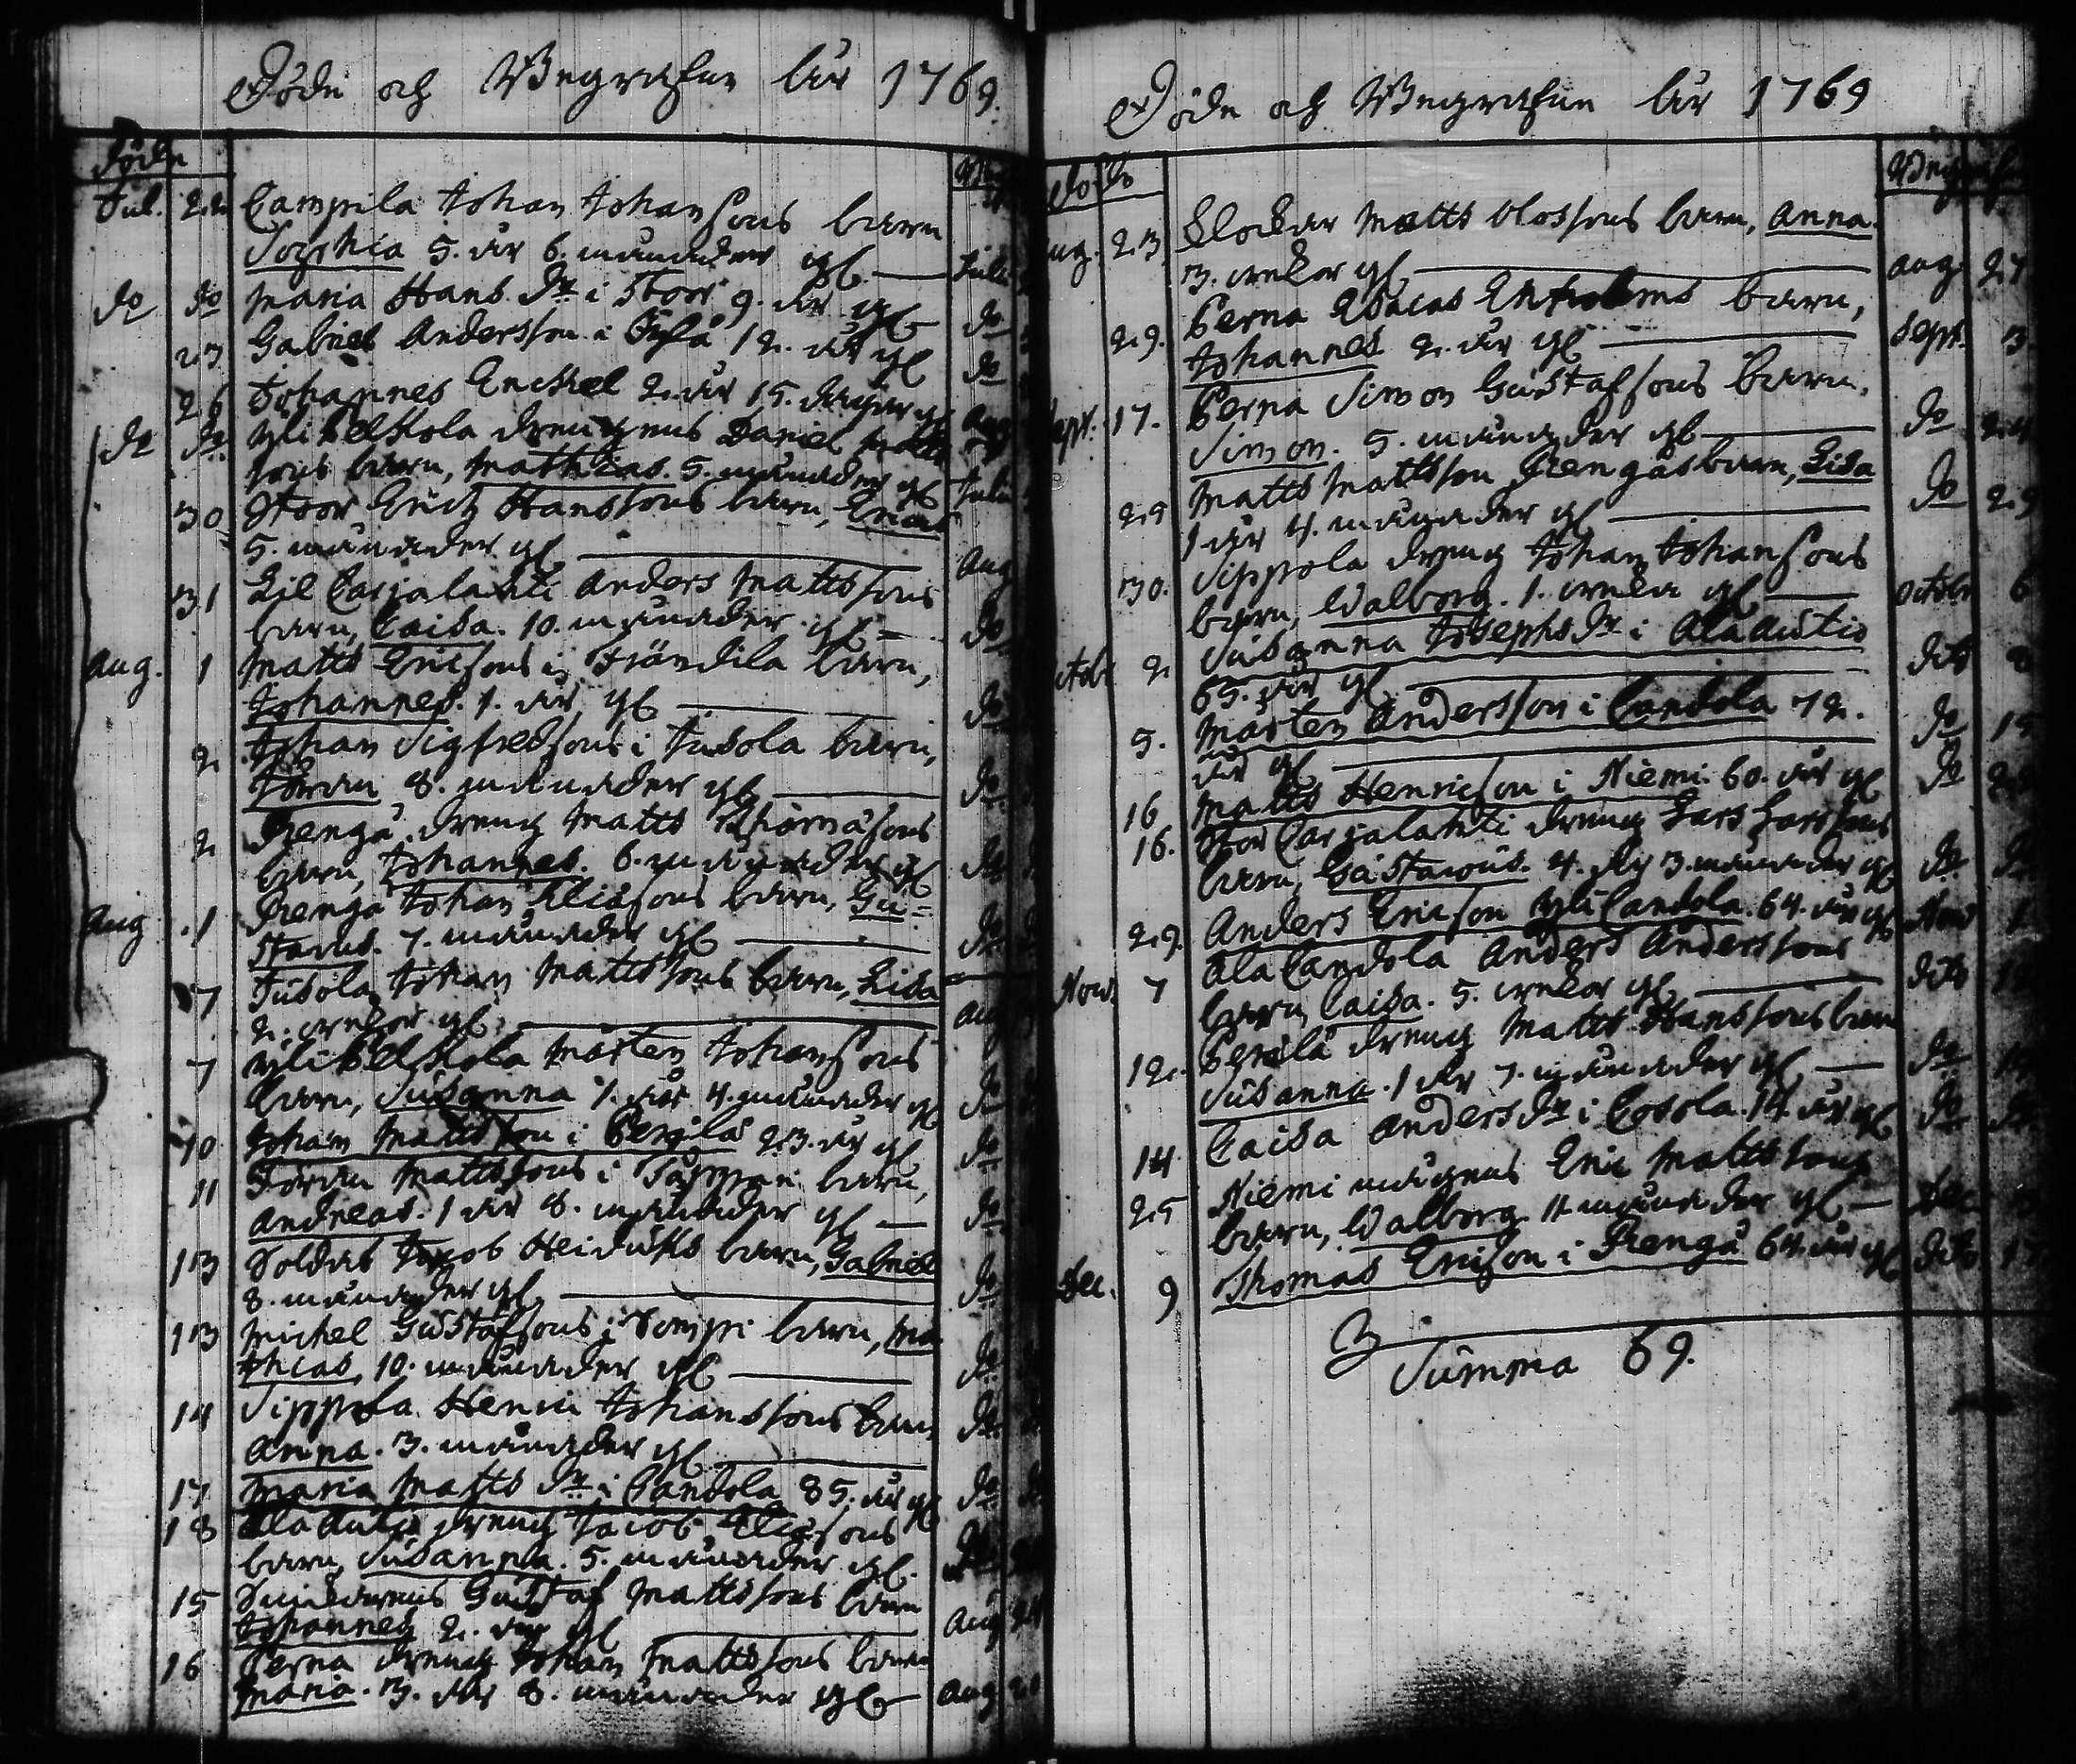 Döde och Begrafne År 1769.
Döde
Jul. 22 Campila Johan Johanssons barn
Sophia 5. år 6. månader gl. Julii
do do Maria Hans dr i Stoor 9. år gl do
23 Gabriel Andersson i 12. år gl do
26 Johannes Enckel 2. år 15. dagar gl Aug
do do Yli Pelkola drengens Daniel Matts
sons barn, Mathias. 5. månader gl Julii
30 Stoor Erich Hanssons barn, Ericus
5. månader gl Aug
31 Lil Carjalahti Anders Mattssons
barn, Caisa. 10. månader gl do
Aug. 1 Matts Ericsons i Frändila barn,
Johannes. 1. år gl do
2 Johan Sigfredsons i Jusola barn,
Jöran 8. månader gl do
2 Rengå dreng Matts Thomasons
barn, Johannes. 6. månader gl do
Aug 1 Rengå Johan Eliassons barn, Gu=
stavus. 7. månader gl do
7 Jusola Johan Mattssons barn, Lisa
2. wekor gl Aug
7 Yli Pelkola Mårten Johansons
barn, Susanna 1. år 4. månader gl do
10 Johan Mattsson i Perälä 23. år gl do
11 Jöran Mattssons i barn,
Andreas. 1 år 8. månader gl do
13 Soldat Jacob Heiduks barn, Gabriel
8. månader gl do
13 Michel Gustafsons i Sompi barn, Ma
thias, 10. månader gl do
14 Sippola Henric Johanssons barn
Anna. 3. månader gl do
17 Maria Matts dr i Candola 85. år gl do
18 Ala Autio dreng Jacob Eliassons
barn, Susanna. 5. månader gl.
15 Gustaf Mattssons barn
Johannes 2. år gl Aug 24
16 Perna dreng Johan Mattssons barn
Maria. 3. år 8. månader gl Aug 20
Döde och Begrafne År 1769
Döde Begrafne
Aug. 23 Klockar Matts Olossons barn, Anna
3. wekor gl Aug. 27
29. Perna Esaias Enholms barn,
Johannes 2. år gl Sept. 3
Sept. 17. Perna Simon Gustafsons barn,
Simon. 5. månader gl do 24
29 Matts Mattsson Rengås barn, Lisa
1 år 4. månader gl do 29
30. Sippola dreng Johan Johansons
barn, Walborg. 1. weka gl octobr 6
octobr 2 Susanna Josephs dr i Ala Autio
65. år gl dito 8
5. Mårten Andersson i Candola 72.
år gl do 15
16 Matts Henricson i Niemi 60. år gl do 22
16. Stor Carjalahti dreng Lars Larssons
barn, Gustavus. 4. år 3. månader gl do do
29. Anders Ericson Yli Candola. 64. år gl Nov 1
Nov. 7 Ala Candola Anders Anderssons
barn, Caisa. 5. wekor gl dito 12
12. Perälä dreng Matts Hanssons barn
Susanna. 1 år 7. månader gl do
14 Caisa Anders dr i Cosola. 14. år gl do do
25 Niemi mågens Eric Mattssons
barn, Walborg. 11 månader gl Dec
Dec. 9 Thomas Ericson i Rengå 64. år gl dito 17
Summa 69.